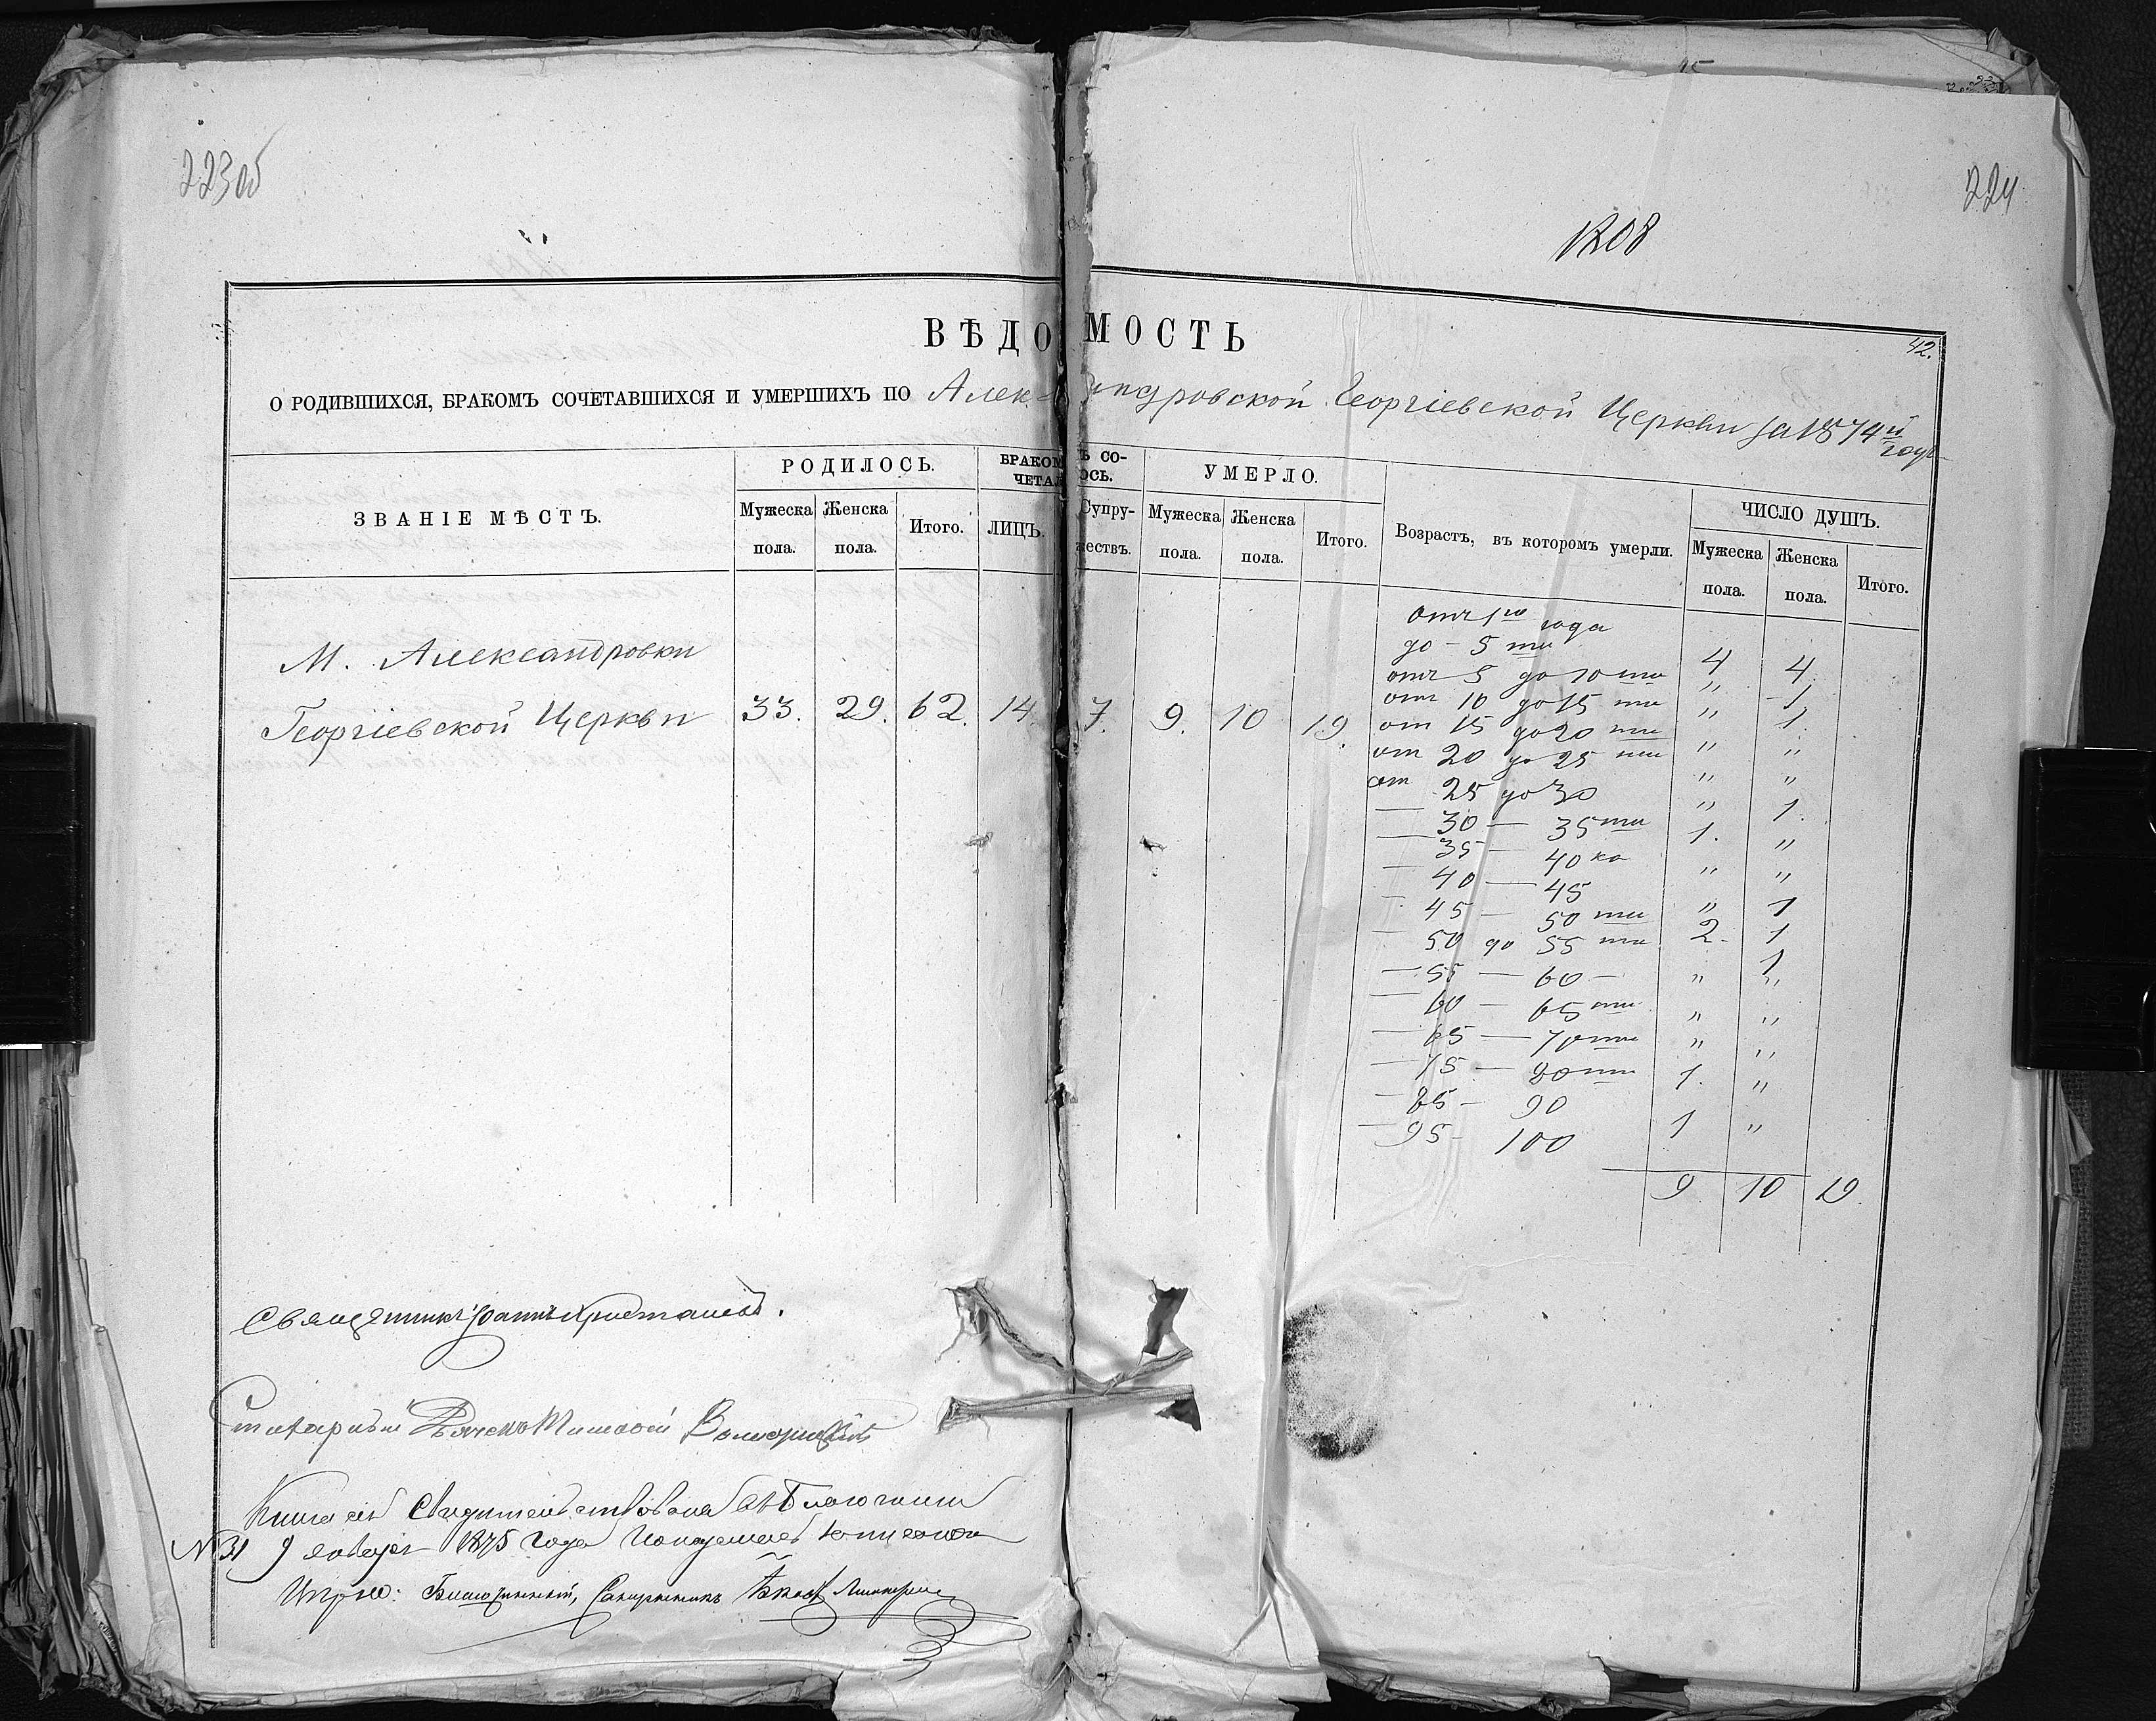 223об
224
1208
42.
ВѢДОМОСТЬ
О РОДИВШИХСЯ, БРАКОМЪ СОЧЕТАВШИХСЯ И УМЕРШИХЪ ПО Александровской Георгіевской Церкви за 1874й годъ
ЗВАНІЕ МѢСТЪ.
РОДИЛОСЬ.
Мужеска пола.
Женска пола.
Итого.
БРАКОМЪ СО-
ЧЕТАЛОСЬ.
ЛИЦЪ.
Супру-
жествъ.
УМЕРЛО.
Мужеска пола.
Женска пола.
Итого.
Возрастъ, въ которомъ умерли.
ЧИСЛО ДУШЪ.
Мужеска пола.
Женска пола.
Итого.
М. Александровки
Георгіевской Церкви 33. 29. 62. 14. 7. 9. 10 19.
отъ 1го года
до – 5 ти 4 4
отъ 5 до 10 ти " 1
отъ 10 до 15 ти " 1.
от 15 до 20 ти " "
от 20 до 25 ти " "
от 25 до 30 " 1.
— 30 — 35 ти 1. "
— 35 — 40 ка " "
— 40 — 45 " 1
— 45 — 50 ти 2. 1
— 50 до 55 ти 1
— 55 — 60 — " "
— 60 — 65 ти " "
— 65 — 70 ти " "
— 75 — 80 ти 1. "
— 85 — 90
— 95 — 100 1 "
9. 10 19.
Священникъ
Дьячекъ
Книга сія Свидетельствована
№ 31 9 января 1875 года
Благочинный, Священникъ